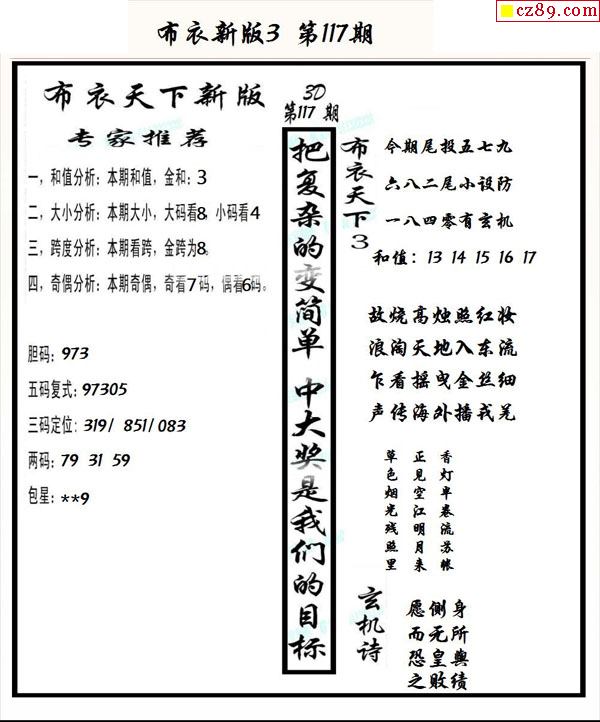 cz89.com
布衣新版3 第117期
布衣天下新版
专家推荐
一，和值分析：本期和值，金和：3
二，大小分析：本期大小，大码看8，小码看4
三，跨度分析：本期看跨，金跨为8。
四，奇偶分析：本期奇偶，奇看7码，偶看6码。
胆码：973
五码复式：97305
三码定位：319/ 851/083
两码：79 31 59
包星：**9
3D
第117 期
把复杂的变简单 中大奖是我们的目标
布衣天下3
今期尾投五七九
六八二尾小设防
一八四零有玄机
和值：13 14 15 16 17
故烧高烛照红妆
浪淘天地入东流
乍看摇曳金丝细
声传海外播戎羌
草色烟光残照里
正见空江明月来
香灯半卷流苏帐
玄机诗
愿侧身
而死所
恐皇舆
之败绩